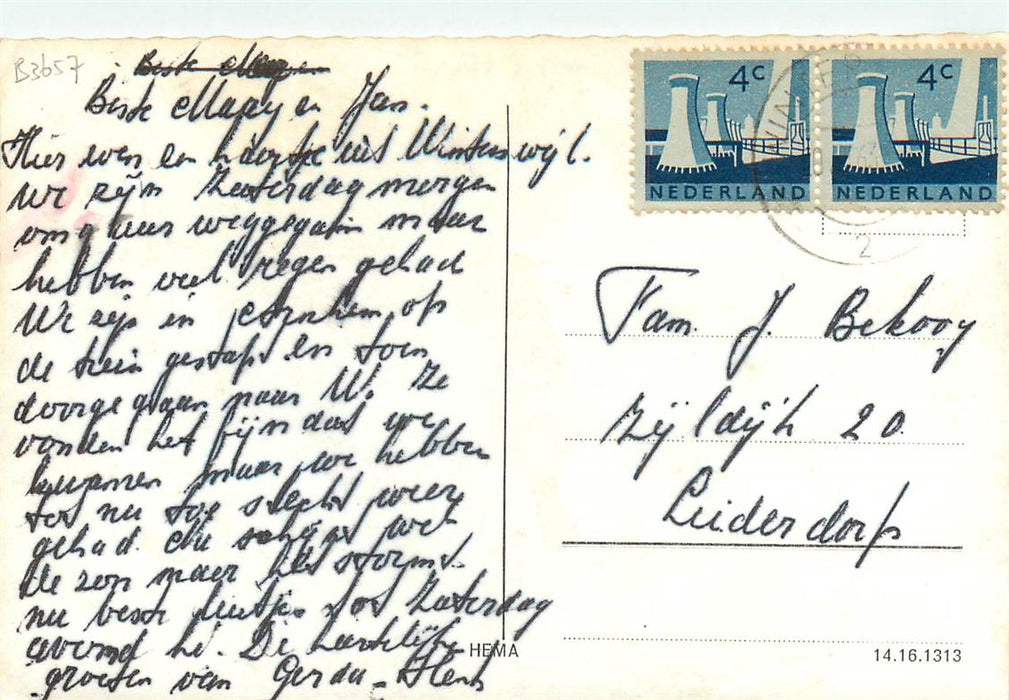 B3657
Beste
Beste Maay en Jan.
Hier even en kaartje uit Winterswijl.
we zijn Zaterdag morgen
om 9 uur weggegaan maar
hebben veel regen gehad
We zijn in Arnhem op
de trein gestapt en toen
doorgegaan naar W. Ze
vonden het fijn dat we
kwamen maar we hebben
tot nu toe slecht weer
gehad. nu schijnt wel
de zon maar het stormt.
nu beste luitjes tot Zaterdag
avond hé. De hartelijke
groeten van Gerda - Henk
4c
NEDERLAND
4c
NEDERLAND
2
Fam. J. Bekooy
Zijldijk 20
Leiderdorp
HEMA
14.16.1313